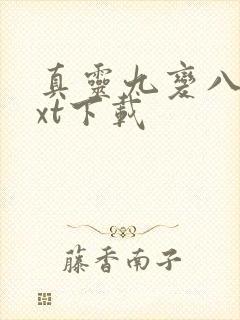 真靈九變八
xt下載
藤香南子